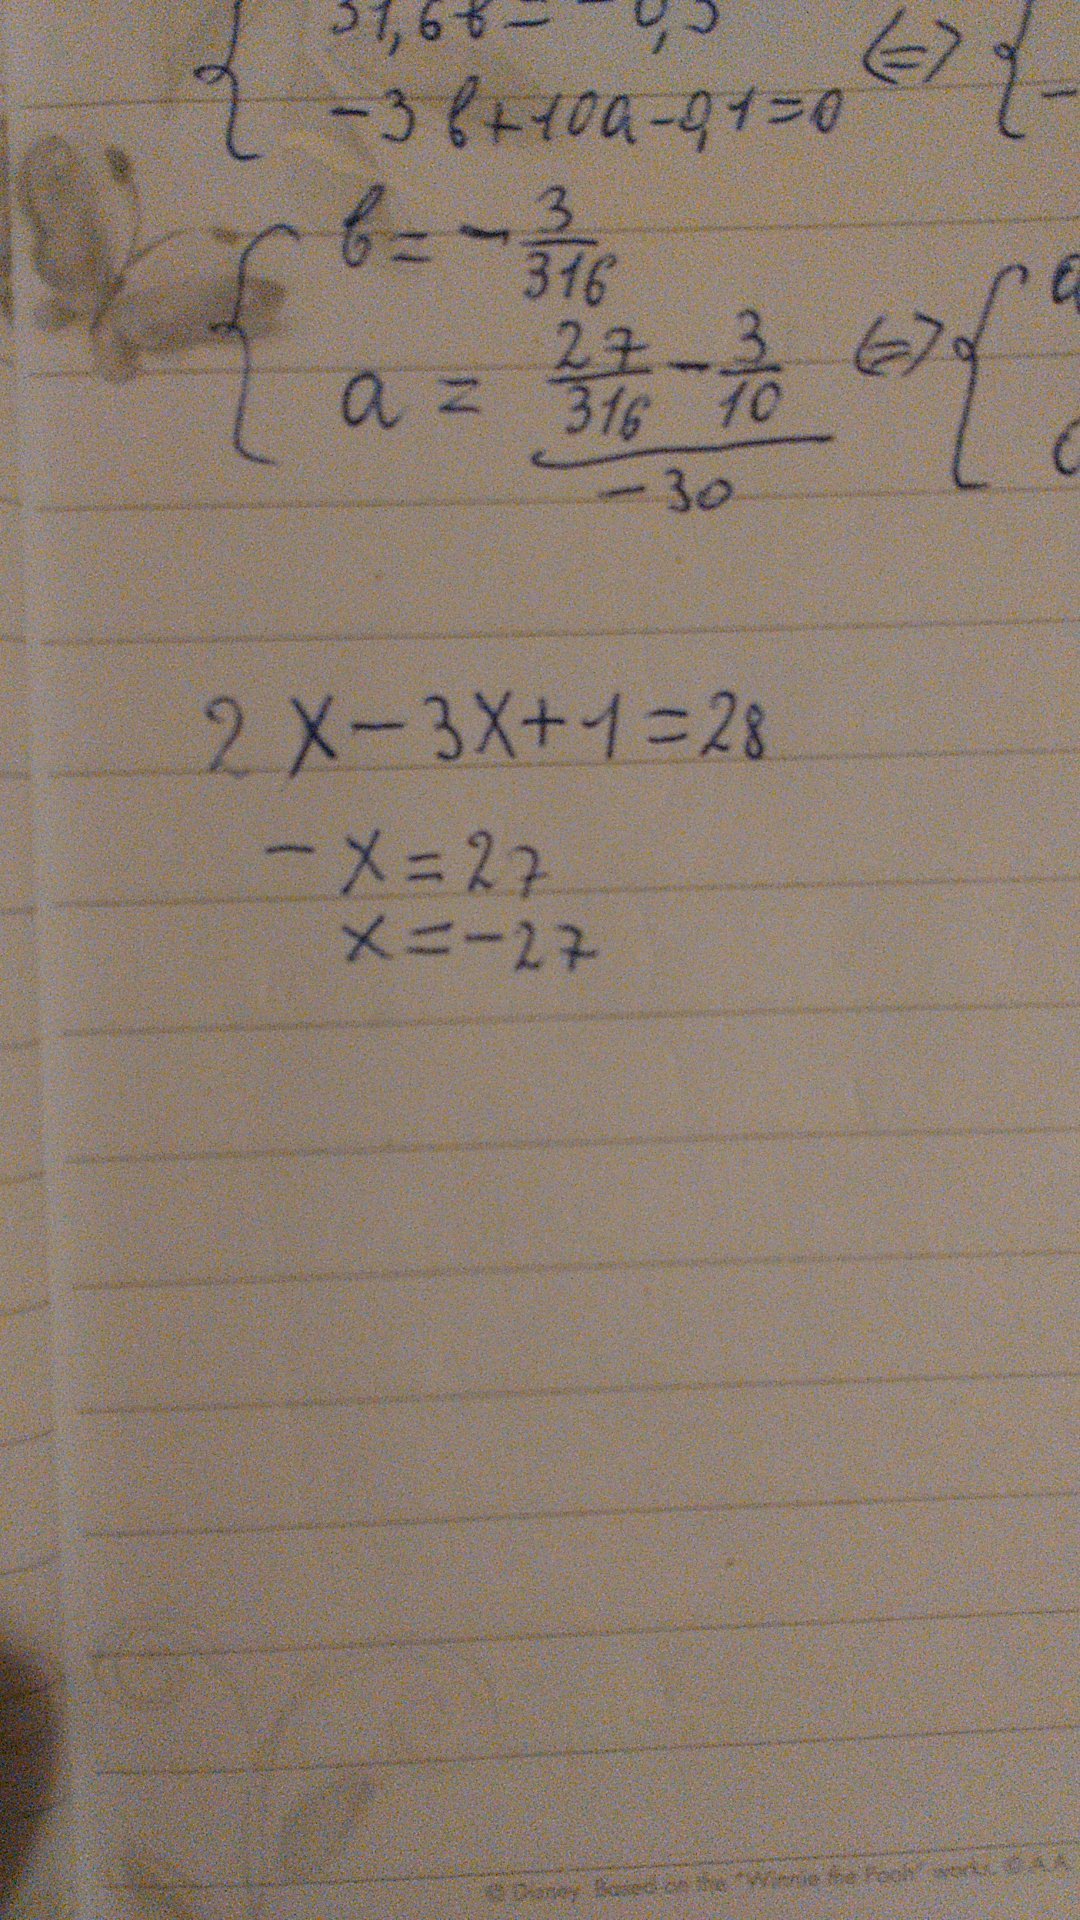 31,6b = -0,3
-3b+10a-0,1=0 <=> -
b = - 3/316
a = (27/316 - 3/10)/-30 <=> a
2x-3x+1=28
-x=27
x=-27
© Disney Based on the "Winnie the Pooh" works. © A.A.